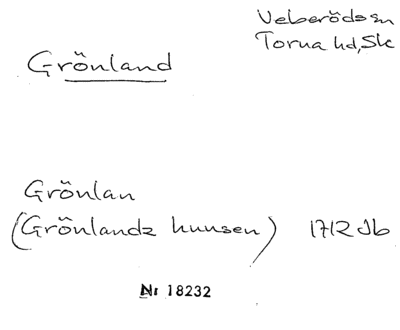 Veberöds sn
Torna hd, Sk
Grönland
Grönlan
(Grönlandz huusen) 1712 Jb
Nr 18232